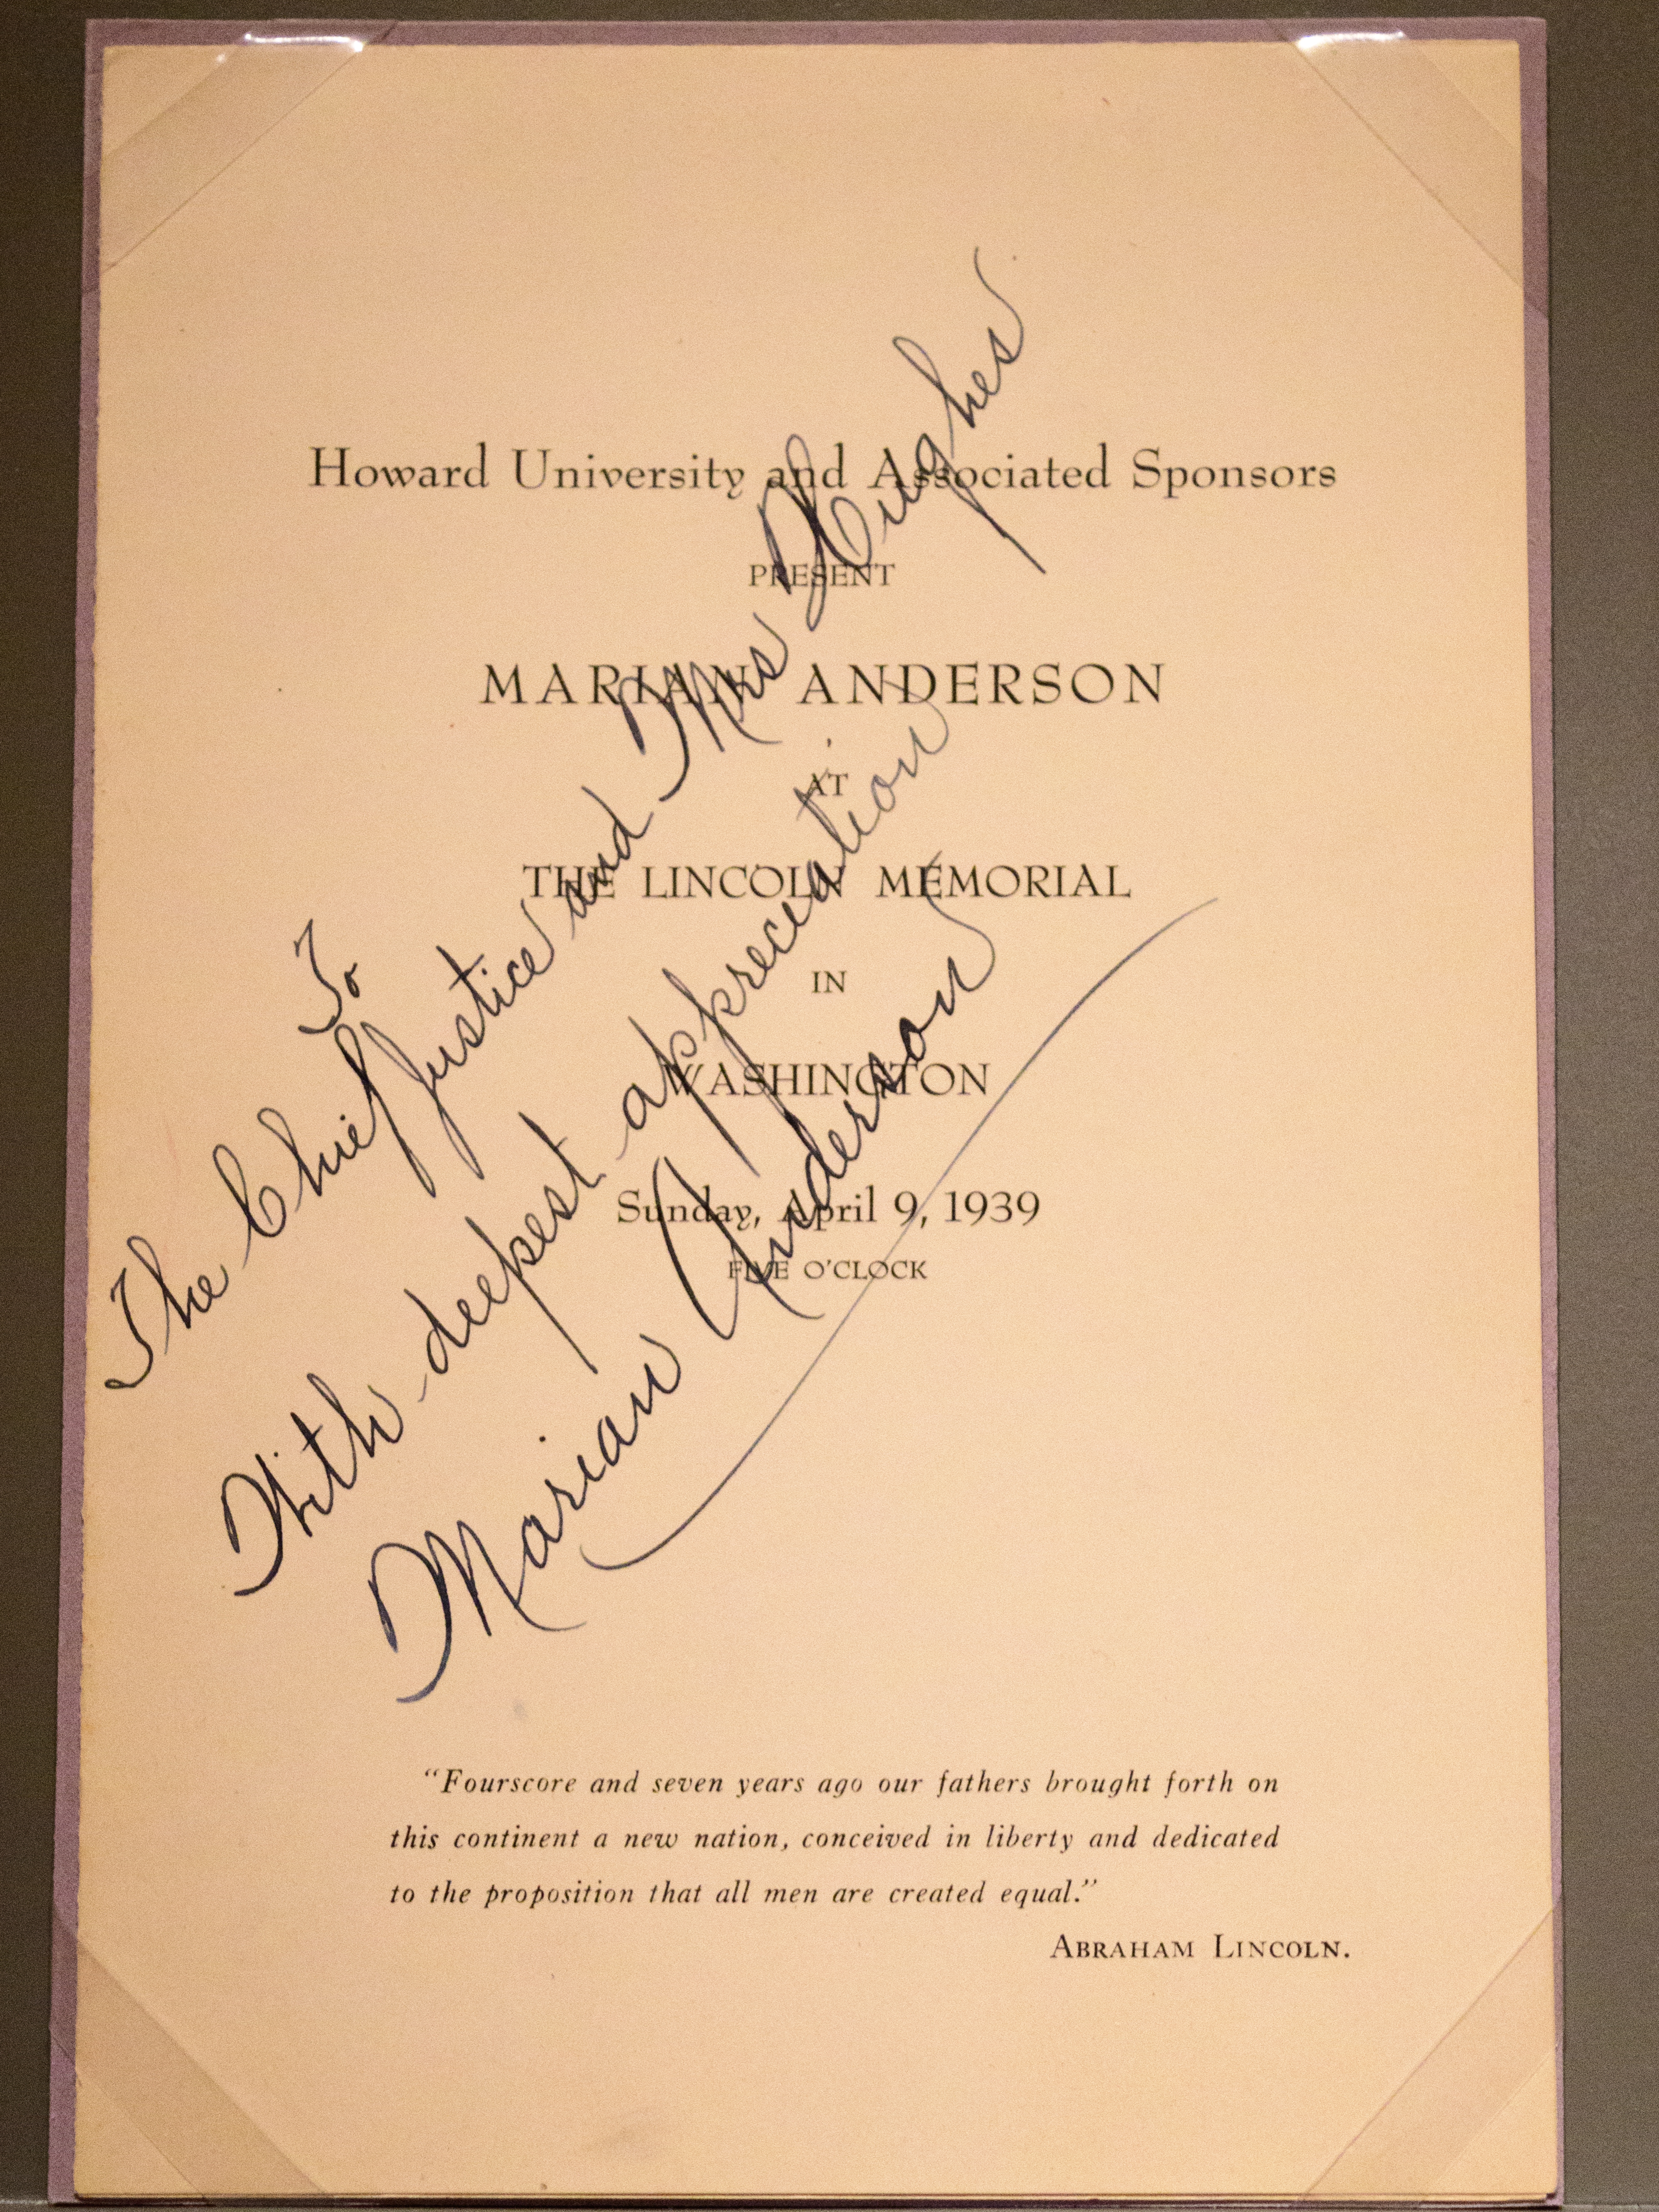 Howard University and Associated Sponsors
PRESENT
MARIAN ANDERSON
AT
THE LINCOLN MEMORIAL
IN
WASHINGTON
Sunday, April 9, 1939
FIVE O'CLOCK
To
The Chief Justice and Mrs Hughes
With deepest appreciation
Marian Anderson
“Fourscore and seven years ago our fathers brought forth on
this continent a new nation, conceived in liberty and dedicated
to the proposition that all men are created equal.”
ABRAHAM LINCOLN.